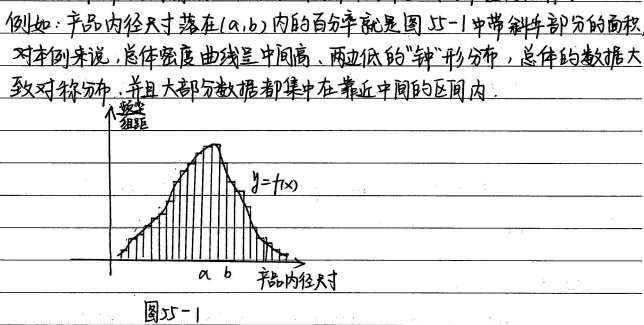 例如：产品内径尺寸落在(a,b)内的百分率就是图55-1中带斜率部分的面积，
对本例来说，总体密度曲线呈中间高、两边低的"钟"形分布，总体的数据大
致对称分布，并且大部分数据都集中在靠近中间的区间内．
频率
组距
y=f(x)
a b 产品内径尺寸
图55-1